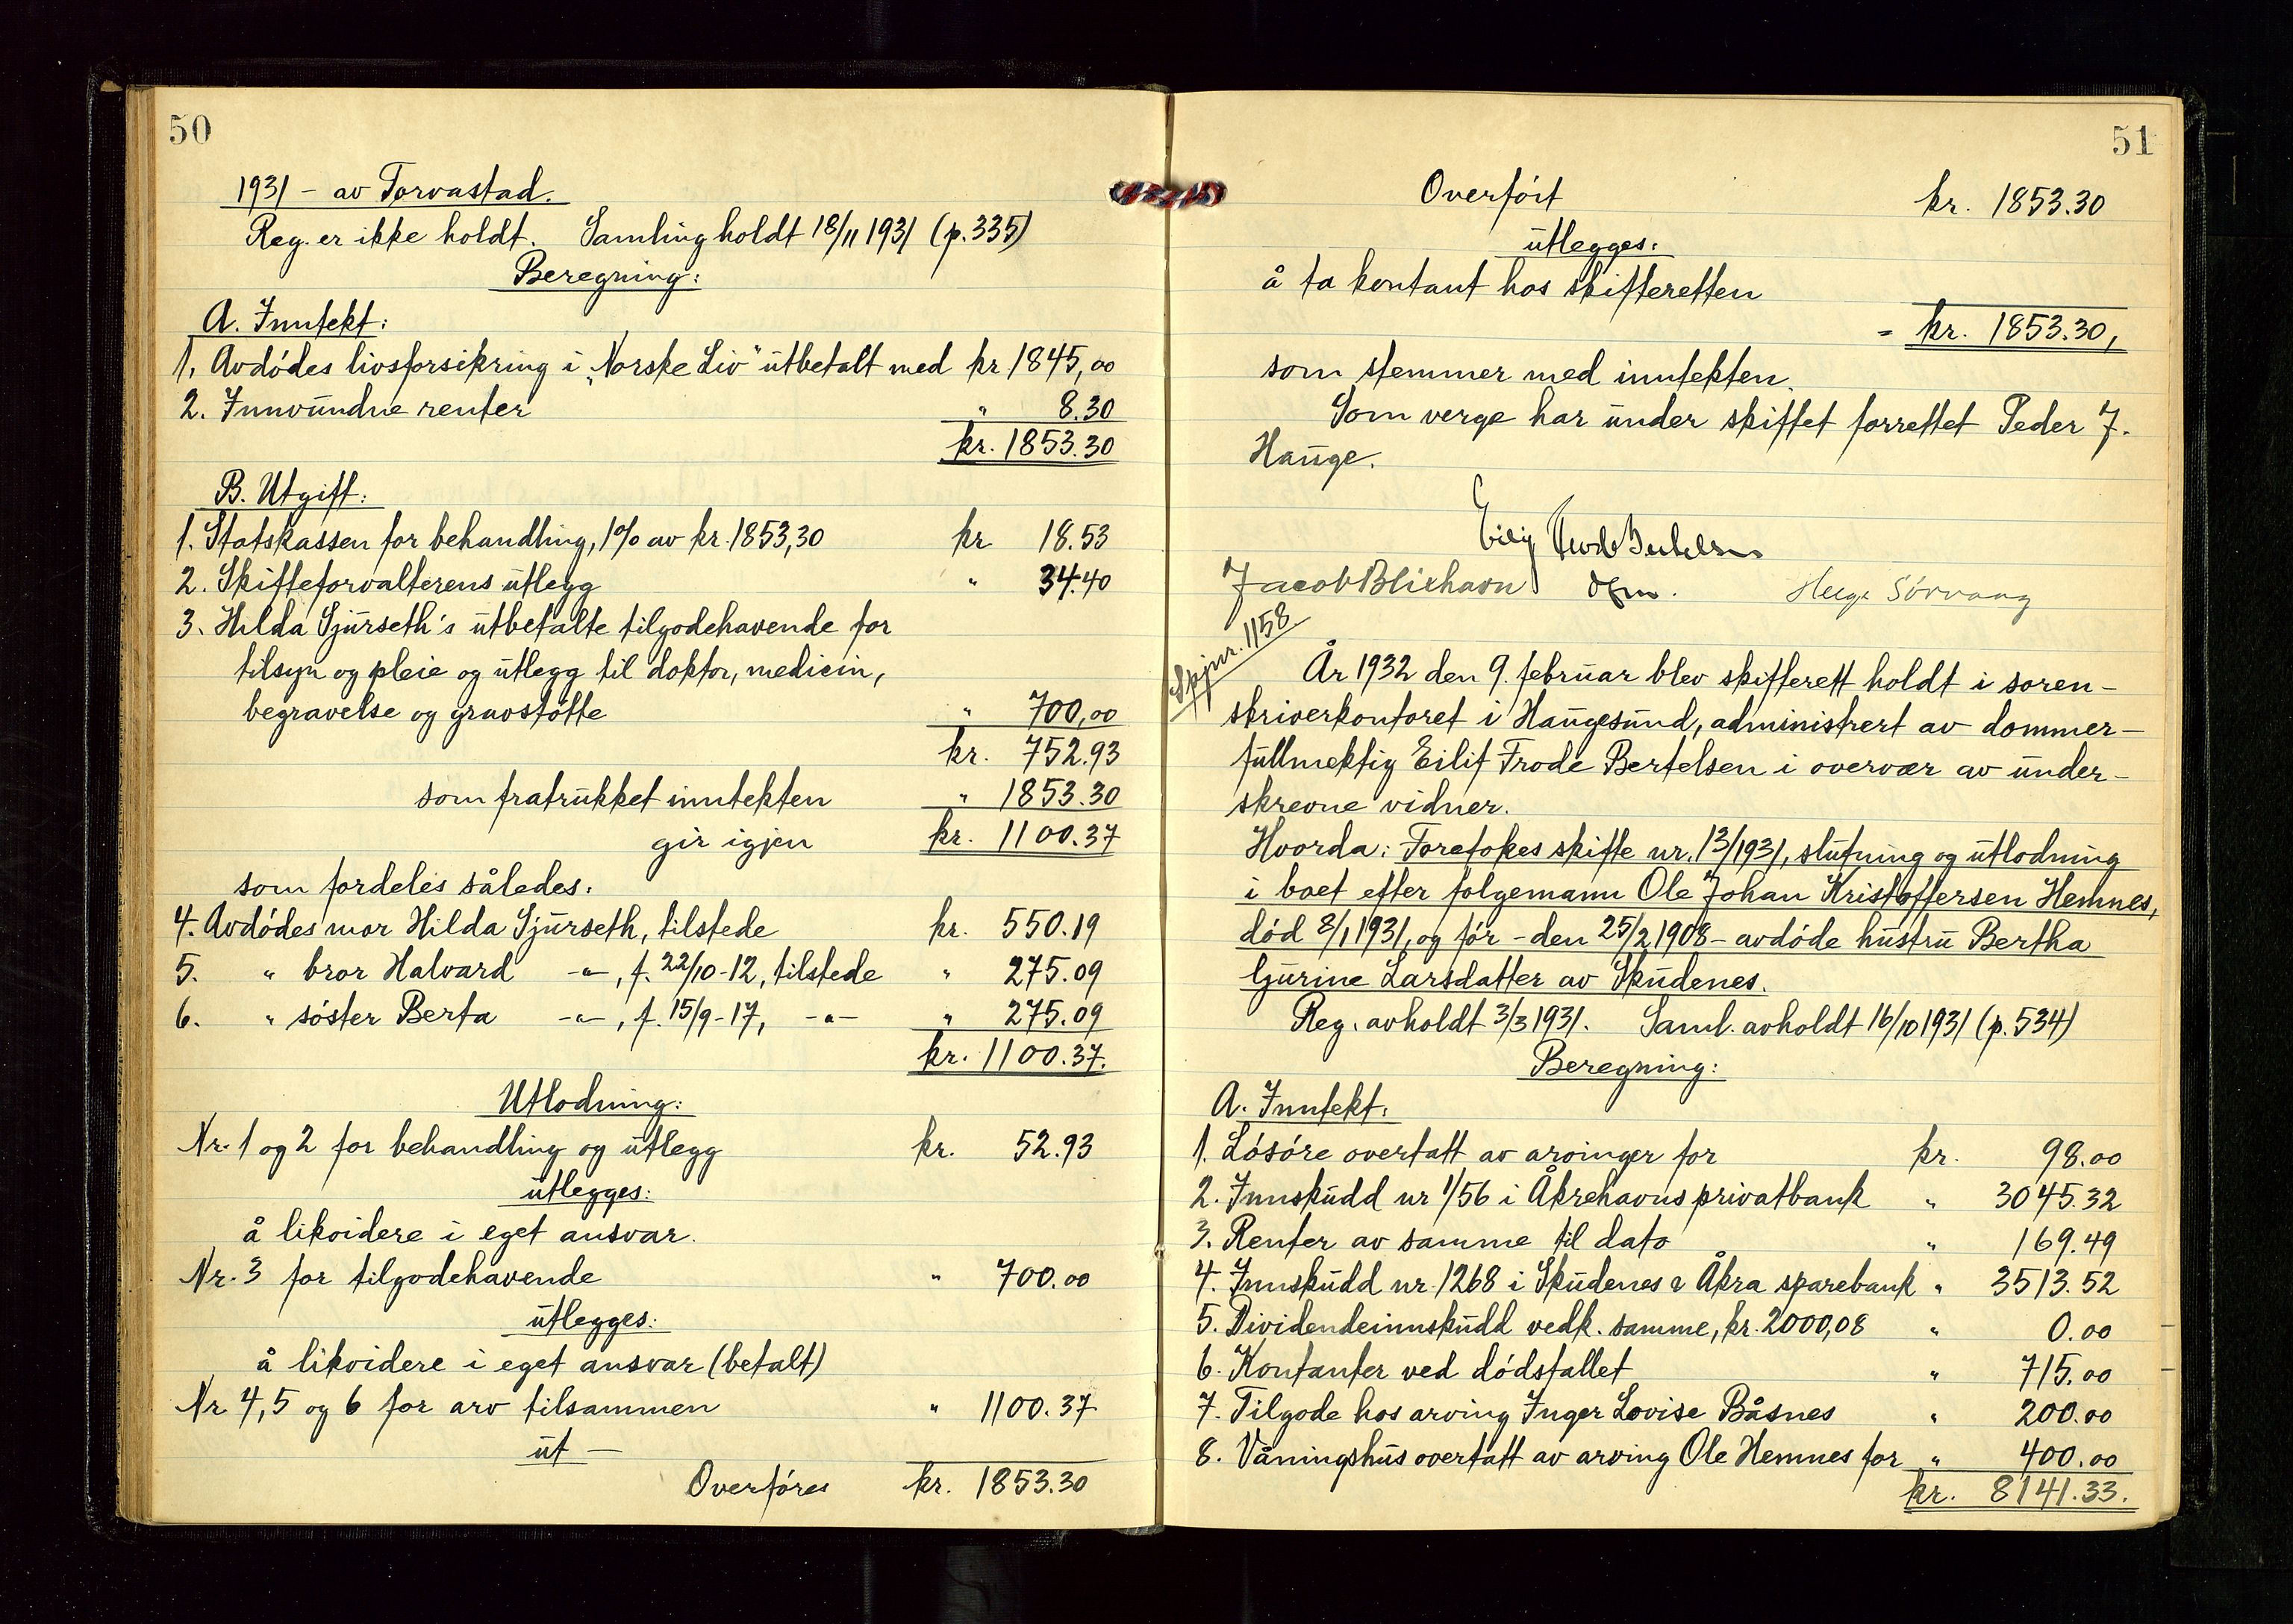 50
1931 – av Torvastad.
Reg. er ikke holdt. Samling holdt 18/11 1931 (p. 335)
Beregning:
A. Inntekt:
1. Avdødes livsforsikring i „Norske Liv" utbetalt med kr 1845,00
2. Innvundne renter " 8.30
kr. 1853.30
B. Utgift:
1. Statskassen for behandling, 1% av kr. 1853,30 kr 18.53
2. Skifteforvalterens utlegg " 34.40
3. Hilda Sjurseth's utbetalte tilgodehavende for
tilsyn og pleie og utlegg til doktor, medicin,
begravelse og gravstøtte " 700,00
kr. 752.93
som fratrukket inntekten " 1853.30
gir igjen kr. 1100.37
som fordeles således:
4. Avdødes mor Hilda Sjurseth, tilstede kr. 550.19
5. " bror Halvard -"-, f. 22/10-12, tilstede " 275.09
6. " søster Berta -"-, f. 15/9-17, -"- " 275.09
kr. 1100.37.
Utlodning:
Nr. 1 og 2 for behandling og utlegg kr. 52.93
utlegges:
å likvidere i eget ansvar.
Nr. 3 for tilgodehavende " 700.00
utlegges:
å likvidere i eget ansvar (betalt)
Nr 4, 5 og 6 for arv tilsammen " 1100.37
ut —
Overføres kr. 1853.30
51
Overført kr. 1853.30
utlegges:
å ta kontant hos skifteretten
= kr. 1853.30,
som stemmer med inntekten.
Som verge har under skiftet forrettet Peder J.
Hauge.
Eilif Frode Bertelsen
Jacob Blikhavn dfm. Helge Sørvang
Skjnr. 1158
År 1932 den 9. februar blev skifterett holdt i soren-
skriverkontoret i Haugesund, administrert av dommer-
fullmektig Eilif Frode Bertelsen i overvær av under-
skrevne vidner.
Hvorda: Foretokes skifte nr. 13/1931, slutning og utlodning
i boet efter følgemann Ole Johan Kristoffersen Hemnes,
død 8/1 1931, og før – den 25/2 1908 – avdøde hustru Bertha
Gurine Larsdatter av Skudenes.
Reg. avholdt 3/3 1931. Saml. avholdt 16/10 1931 (p. 534)
Beregning:
A. Inntekt:
1. Løsøre overtatt av arvinger for kr. 98.00
2. Innskudd nr 1/56 i Åkrehavns privatbank " 3045.32
3. Renter av samme til dato " 169.49
4. Innskudd nr. 1268 i Skudenes & Åkra sparebank " 3513.52
5. Dividendeinnskudd vedk. samme, kr. 2000,08 " 0.00
6. Kontanter ved dødsfallet " 715.00
7. Tilgode hos arving Inger Lovise Båsnes " 200.00
8. Våningshus overtatt av arving Ole Hemnes for " 400.00
kr. 8141.33.